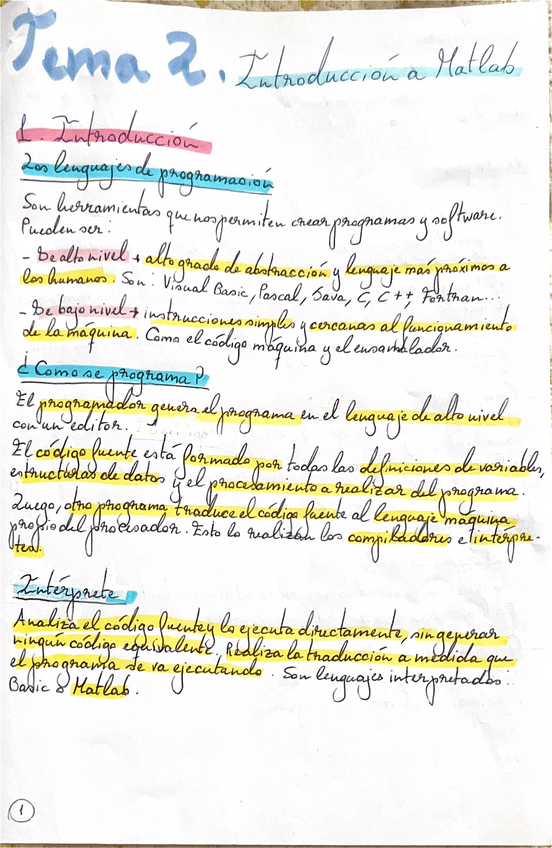 Tema 2. Introducción a Matlab
1. Introducción
Los lenguajes de programación
Son herramientas que nos permiten crear programas y software.
Pueden ser:
- De alto nivel → alto grado de abstracción y lenguaje más próximos a
los humanos. Son: Visual Basic, Pascal, Java, C, C++, Fortran...
- De bajo nivel → instrucciones simples y cercanas al funcionamiento
de la máquina. Como el código máquina y el ensamblador.
¿Como se programa?
El programador genera el programa en el lenguaje de alto nivel
con un editor.
El código fuente está formado por todas las definiciones de variables,
estructuras de datos y el procesamiento a realizar del programa.
Luego, otro programa traduce el código fuente al lenguaje máquina
propio del procesador. Esto lo realizan los compiladores e intérpre-
tes.
Intérprete
Analiza el código fuente y lo ejecuta directamente, sin generar
ningún código equivalente. Realiza la traducción a medida que
el programa se va ejecutando. Son lenguajes interpretados:
Basic o Matlab.
1